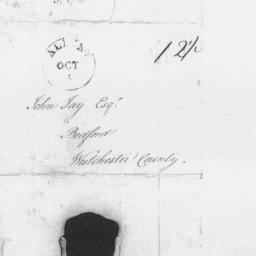 ALBANY
OCT
12½
John Jay Esqr.
Bedford
Westchester County.